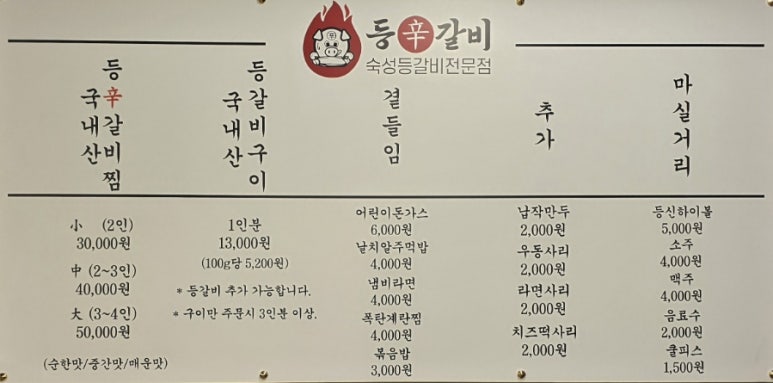 등辛갈비
숙성등갈비전문점
등辛갈비찜
국내산
小 (2인)
30,000원
中 (2~3인)
40,000원
大 (3~4인)
50,000원
(순한맛/중간맛/매운맛)
등갈비구이
국내산
1인분
13,000원
(100g당 5,200원)
* 등갈비 추가 가능합니다.
* 구이만 주문시 3인분 이상.
곁들임
어린이돈가스
6,000원
날치알주먹밥
4,000원
냄비라면
4,000원
폭탄계란찜
4,000원
볶음밥
3,000원
추가
납작만두
2,000원
우동사리
2,000원
라면사리
2,000원
치즈떡사리
2,000원
마실거리
등신하이볼
5,000원
소주
4,000원
맥주
4,000원
음료수
2,000원
쿨피스
1,500원